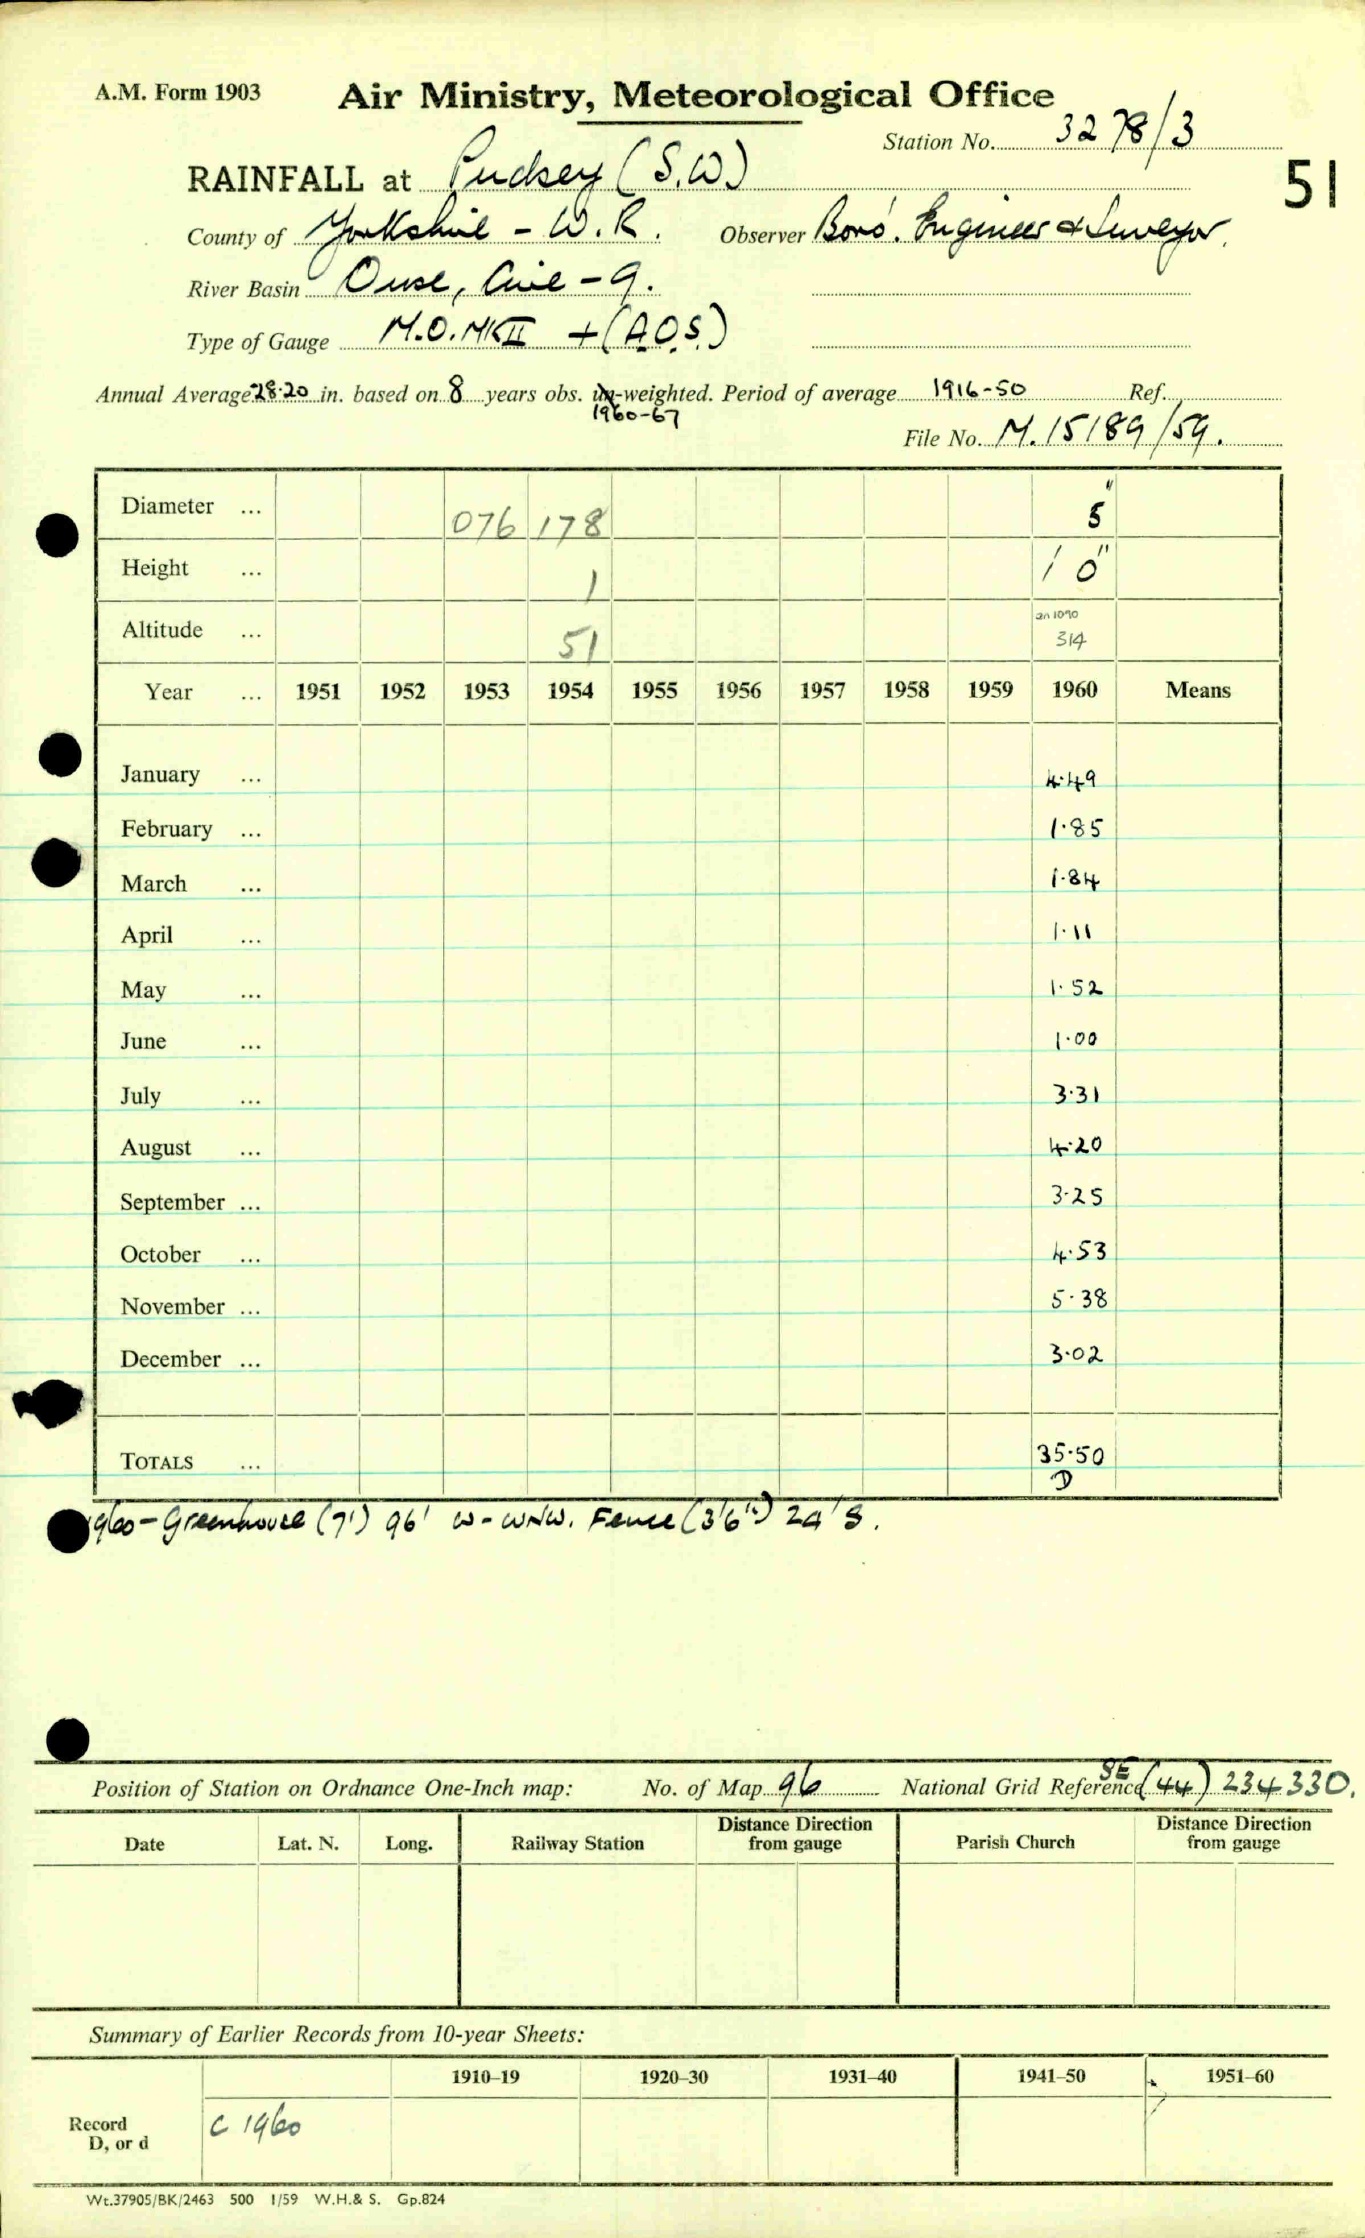 A.M. Form 1903 Air Ministry, Meteorological Office
Station No. 3278/3
RAINFALL at Pudsey (S.W) 51
County of Yorkshire - W.R. Observer Boro'. Engineer & Surveyor.
River Basin Ouse, Aire - 9.
Type of Gauge M.O. MK II + (A.O.S.)
Annual Average 28.20 in. based on 8 years obs. un-weighted. Period of average 1916-50 Ref.
1960-67
File No. M.15189/59.
Diameter ... 076 178 5"
Height ... 1 1' 0"
Altitude ... 51 314
Year ... 1951 1952 1953 1954 1955 1956 1957 1958 1959 1960 Means
January ... 4.49
February ... 1.85
March ... 1.84
April ... 1.11
May ... 1.52
June ... 1.00
July ... 3.31
August ... 4.20
September ... 3.25
October ... 4.53
November ... 5.38
December ... 3.02
TOTALS ... 35.50
D
1960 - Greenhouse (7') 96' W - WNW. Fence (3'6") 24' S.
Position of Station on Ordnance One-Inch map: No. of Map 96 National Grid Reference SE (44) 234330.
Date Lat. N. Long. Railway Station Distance Direction from gauge Parish Church Distance Direction from gauge
Summary of Earlier Records from 10-year Sheets:
1910–19 1920–30 1931–40 1941–50 1951–60
Record C 1960
D, or d
Wt.37905/BK/2463 500 1/59 W.H.& S. Gp.824